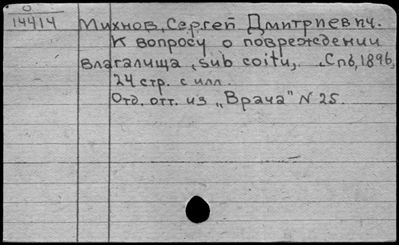 0
14414
Михнов, Сергей Дмитриевич.
К вопросу о повреждении
влагалища "sub coitu". Спб, 1896,
24 стр. с илл.
Отд. отт. из "Врача" N 25.